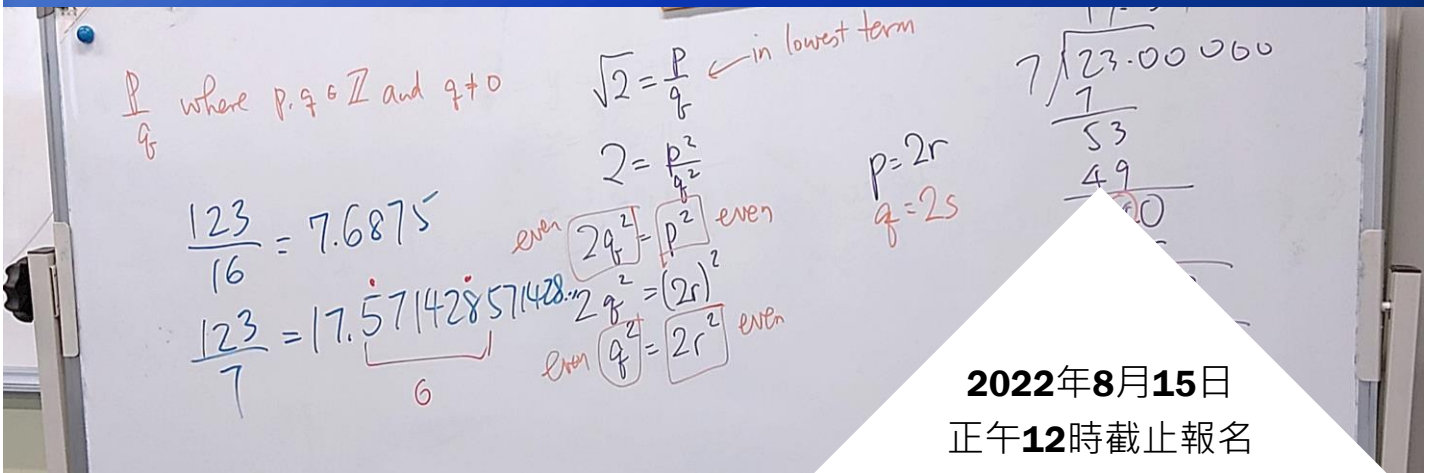 p/q where p, q ∈ ℤ and q ≠ 0
123/16 = 7.6875
123/7 = 17.571428571428...
6
√2 = p/q ← in lowest term
2 = p²/q²
even 2q² = p² even
2q² = (2r)²
even q² = 2r² even
p = 2r
q = 2s
7 23.00000
7
53
49
2022年8月15日
正午12時截止報名